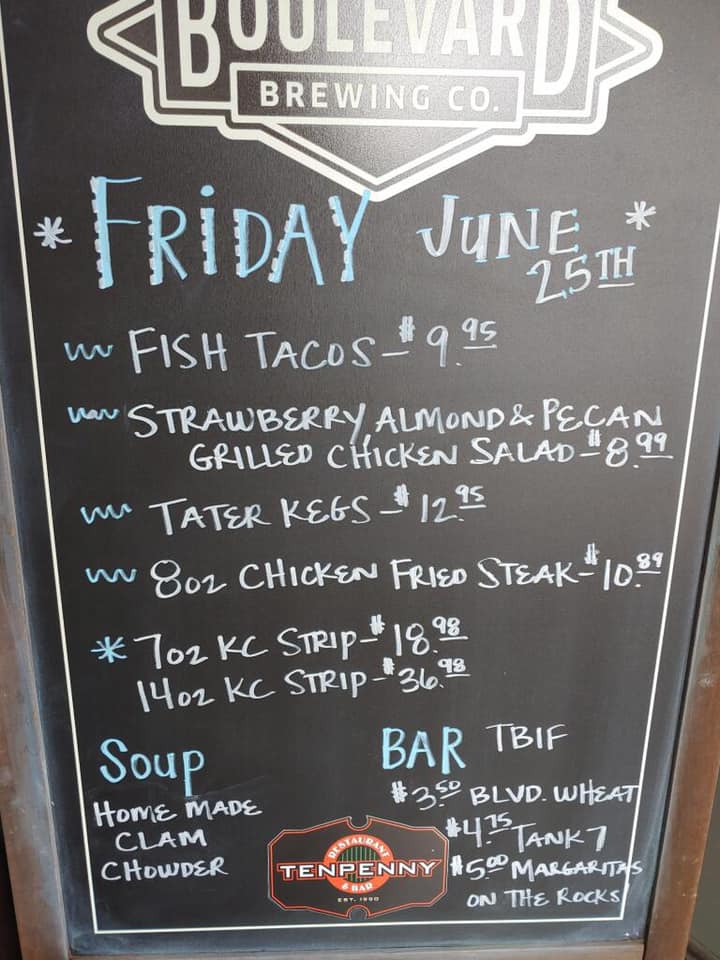 BOULEVARD
BREWING CO.
* FRIDAY JUNE 25TH *
FISH TACOS - $9.95
STRAWBERRY, ALMOND & PECAN
GRILLED CHICKEN SALAD - $8.99
TATER KEGS - $12.95
8oz CHICKEN FRIED STEAK - $10.89
* 7oz KC STRIP - $18.98
14oz KC STRIP - $36.98
Soup
HOME MADE
CLAM
CHOWDER
BAR TBIF
$3.50 BLVD. WHEAT
$4.75 TANK 7
$5.00 MARGARITAS
ON THE ROCKS
RESTAURANT
TENPENNY
& BAR
EST. 1990